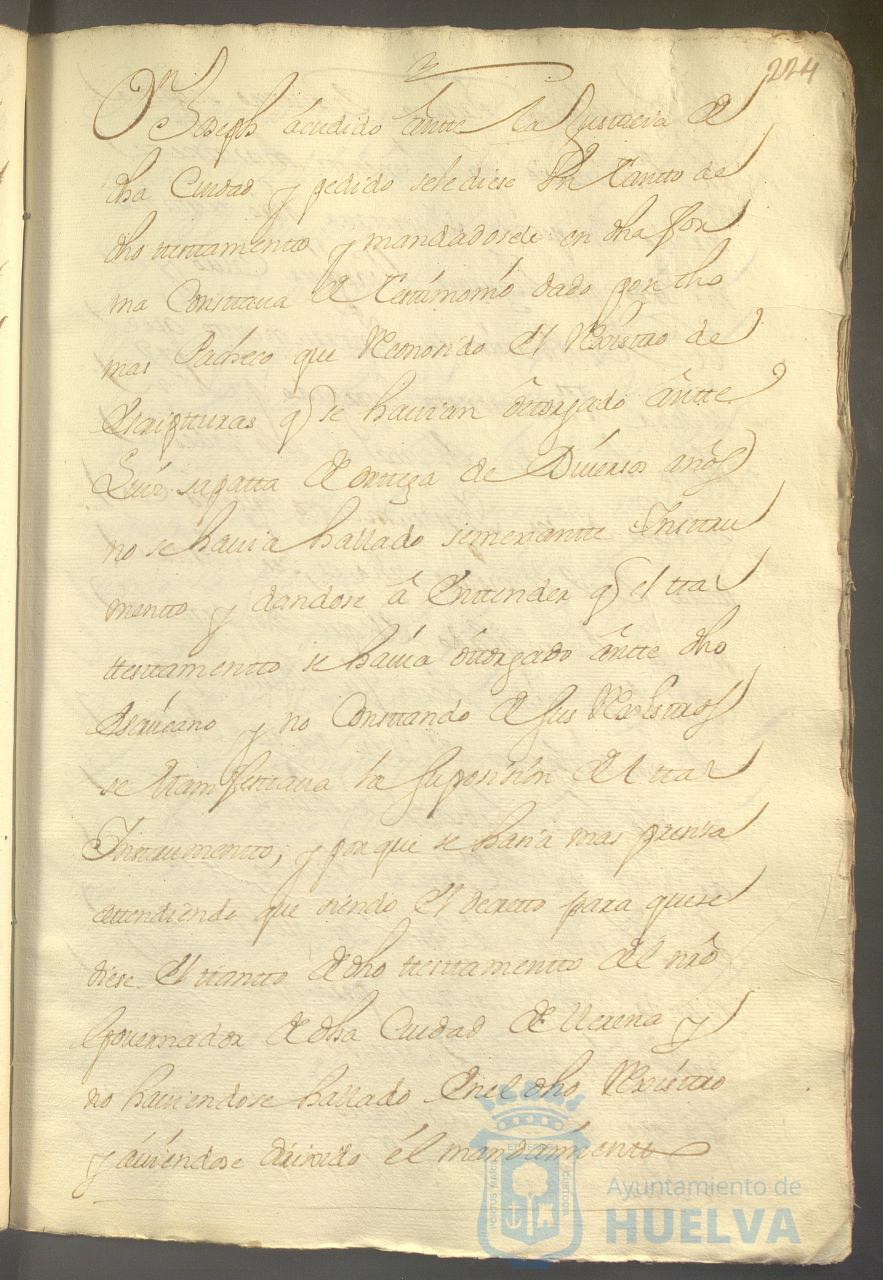 224
Dn Joseph acudido ante la Justicia de
dha Ciudad y pedido sele diese Un tantto de
dho testtamentto y mandadosele en dha for
ma Consttava el testimonio dado por tho
mas Pacheco que Reconosido el Rexistro de
Escriptturas q se havian ôttorgado ântte
Luis sapatta de orttega de Diversos años
no se havia hallado semexantte Insttru
mentto y dandose â Enttender q el ttal
testtamentto se havia ôttorgado ântte dho
Escrivano y no Consttando de sus Rexisttros
se Manifesttava la suposision del ttal
Instrumentto, y porque se haria mas presisa
attendiendo que siendo el Decretto para que se
diese el ttantto de dho testtamentto del nro
Governador de dha Ciudad de Llerena y
no haviendose hallado En el dho Rexisttro
y âviendose dirixido él mandamientto
Ayuntamiento de
HUELVA
PORTUS MARIS ET TERRÆ CUSTODIA